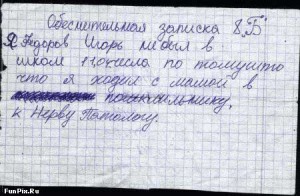 Обеснительная записка 8 "Б"
Я Федоров Игорь не был в
школе 11.04 числа по томушто
что я ходил с мамой в
поликсильнику,
к Нерву Патологу.
FunPix.Ru